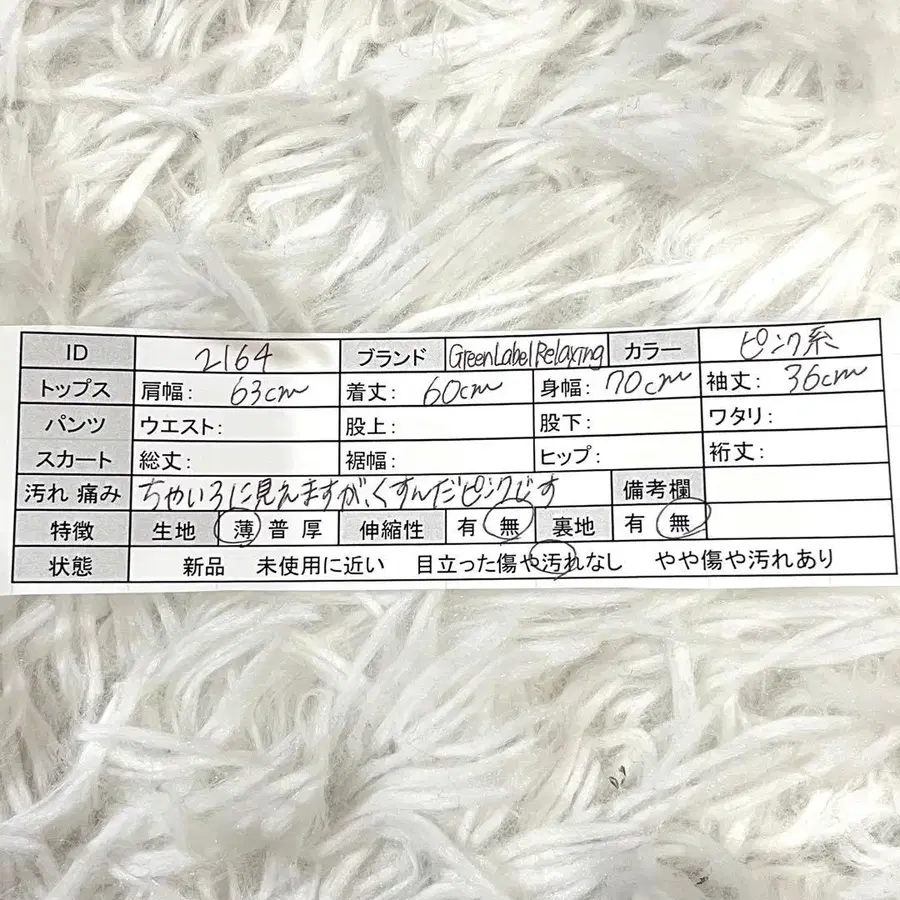 ID 2164 ブランド GreenLabelRelaxing カラー ピンク系
トップス 肩幅: 63cm 着丈: 60cm 身幅: 70cm 袖丈: 36cm
パンツ ウエスト: 股上: 股下: ワタリ:
スカート 総丈: 裾幅: ヒップ: 裄丈:
汚れ 痛み ちゃいろに見えますが、くすんだピンクです 備考欄
特徴 生地 薄 普 厚 伸縮性 有 無 裏地 有 無
状態 新品 未使用に近い 目立った傷や汚れなし やや傷や汚れあり